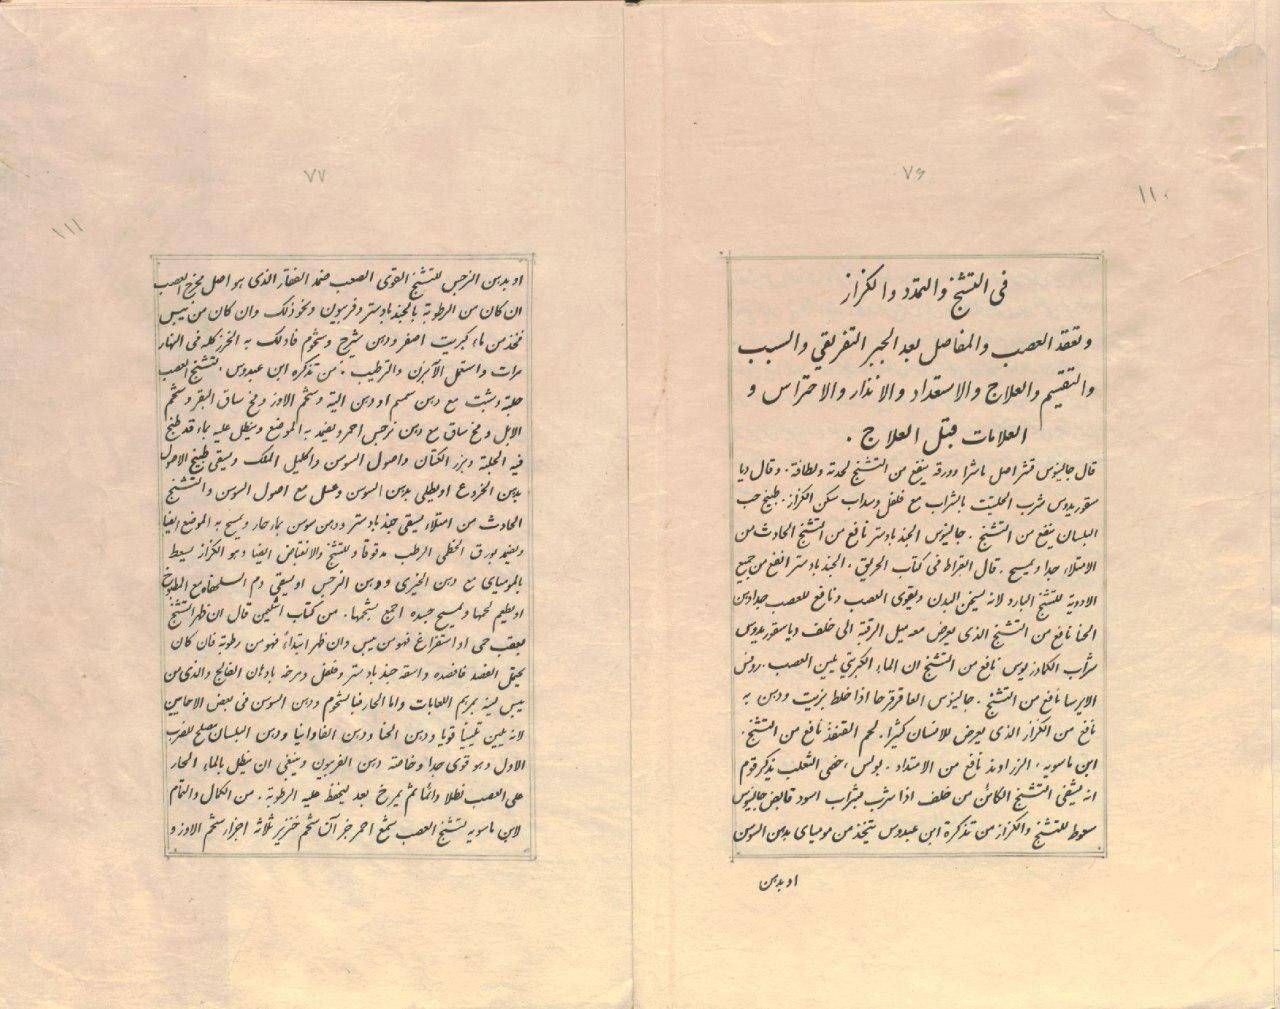 ٧٦
١١٠
في التشنج والتمدد والكزاز
وتعقد العصب والمفاصل بعد الجبر التفريقي والسبب
والتقسيم والعلاج والاستعداد والانذار والاحتراس و
العلامات قبل العلاج .
قال جالينوس قشر اصل باشرا وورقه ينفع من التشنج لحدته ولطافة . وقال ديا
سقوريدوس شرب الحلتيت بالشراب مع فلفل وسداب سكن الكزاز . طبيخ حب
البلسان ينفع من التشنج . جالينوس الجندبادستر نافع من التشنج الحادث من
الامتلاء جدا وتمسيح . قال القراط في كتاب الحريق . الجندبادستر انفع من جميع
الادوية للتشنج البارد لانه يسخن البدن ويقوي العصب ونافع للعصب جدا دهن
الحنا نافع من التشنج الذي يعرض معه ميل الرقبة الى خلف دياسقوريدوس
شراب الكمادريوس نافع من التشنج ان الماء الكبريتي يلين العصب . روفس
الايرسا نافع من التشنج . جالينوس العاقرقرحا اذا خلط بزيت ودهن به
نافع من الكزاز الذي يعرض للانسان كثيرا . لحم القنفذ نافع من التشنج .
ابن ماسويه . الزراوند نافع من الامتداد . بولس . خصى الثعلب يذكر قوم
انه يشفي التشنج الكائن من خلف اذا شرب بشراب اسود قابض جالينوس
سعوط للتشنج والكزاز من تذكرة ابن عبدوس يتخذ من موميائ بدهن السوسن
او بدهن
٧٧
١١١
او بدهن النرجس للتشنج القوي الصعب ضمد الفقار الذي هو اصل مخرج العصب
ان كان من الرطوبة بالجندبادستر وفربيون ونحو ذلك وان كان من يبس
فخذ من ماء كبريت اصفر ودهن شيرج وشحوم فادلك به الخرز كله في النهار
مرات واستعمل الآبزن والترطيب . من تذكرة ابن عبدوس . لتشنج العصب
حلبة وشبت مع دهن سمسم او دهن الية وشحم الاوز ومخ ساق البقر وشحم
الابل ومخ ساق مع دهن نرجس احمر ويضمد به الموضع وينطل عليه بماء قد طبخ
فيه الحلبة وبزر الكتان واصول السوسن واكليل الملك ويسقى طبيخ الاصول
بدهن الخروع او يطلى بدهن السوسن وعسل مع اصول السوسن والتشنج
الحادث من امتلاء يسقى جندبادستر ودهن سوسن بماء حار ويمسح به الموضع ايضا
ويضمد بورق الخطمي الرطب مدقوقا وللتشنج والانقباض ايضا وهو الكزاز يسعط
بالموميائ مع دهن الخيرى ودهن النرجس او يسقى دم السلحفاة مع المطبوخ
او يطعم لحمها ويمسح جسده اجمع بشحمها . من كتاب قال ان ظهر التشنج
بعقب حمى او استفراغ فهو من يبس وان ظهر ابتداء فهو من رطوبة فان كان
يحتمل الفصد فافصده واسقه جندبادستر وفلفل ومرخه بادهان الفالج والذي من
يبس لينه بمريم اللعابات واما الحار فبالشحوم ودهن السوسن في بعض الاحايين
لانه يلين تليينا قويا ودهن الحنا ودهن الفاوانيا ودهن البلسان يصلح للضرب
الاول وهو قوي جدا وخاصة دهن الفربيون وينبغي ان ينطل بالماء الحار
على العصب نطلا دائما ثم يمرخ بعد ليحفظ عليه الرطوبة . من الكمال والتمام
لابن ماسويه لتشنج العصب شمع احمر جزآن شحم خنزير ثلاثة اجزاء شحم الاوز و